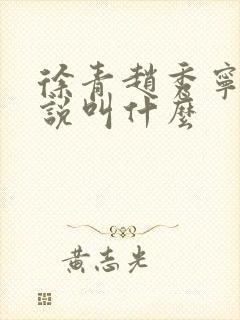 徐青趙秀寧
說叫什麼
黃志光